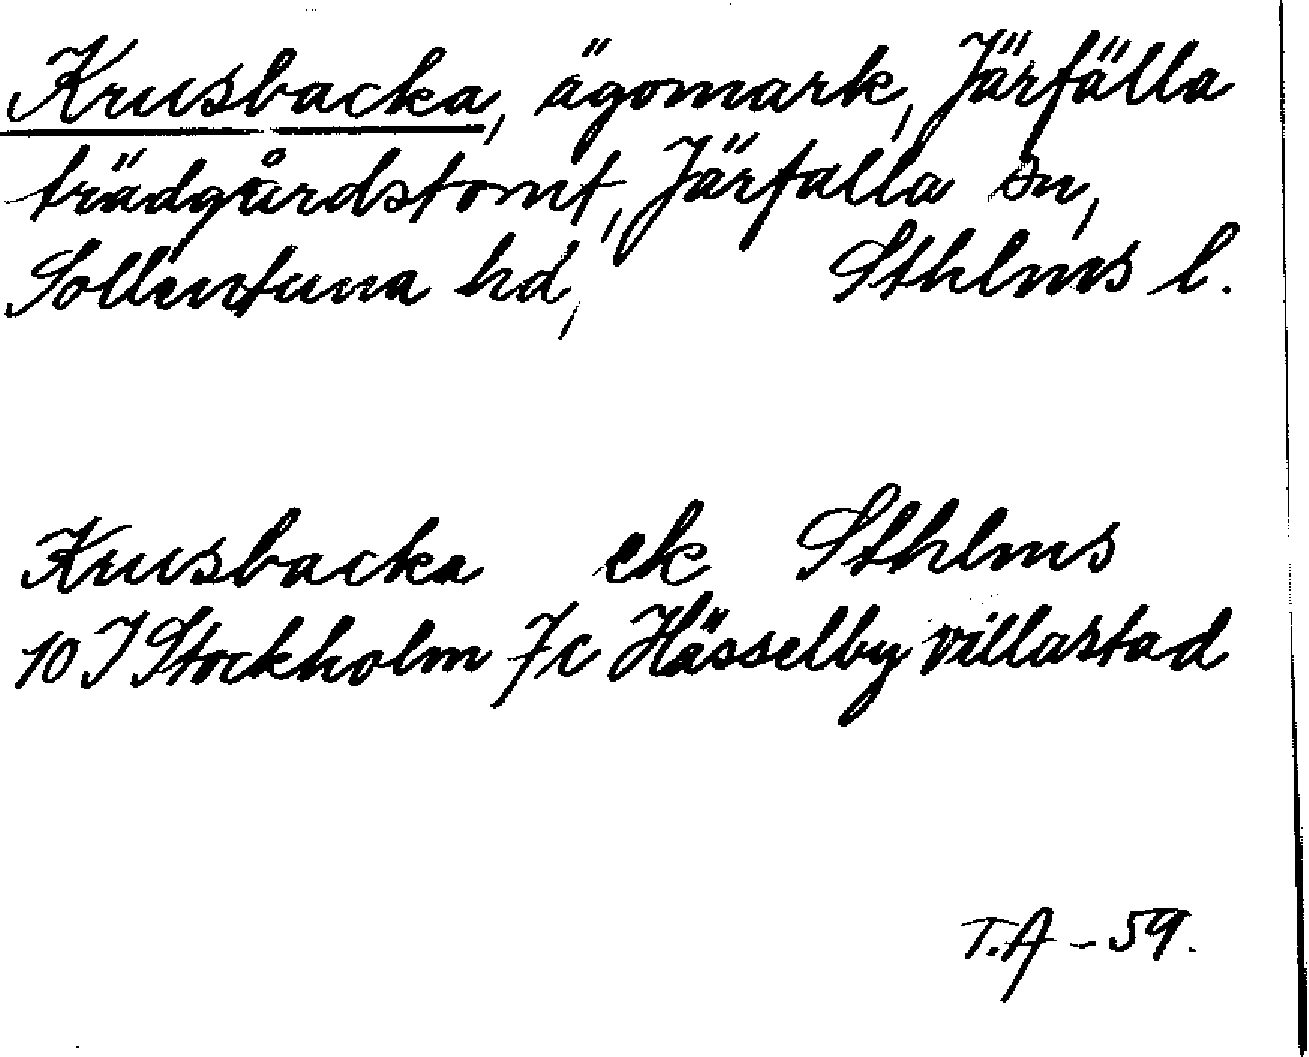 Krusbacka, ägomark, Järfälla
trädgårdstomt, Järfälla sn,
Sollentuna hd, Sthlms l.
Krusbacka ek Sthlms
10 I Stockholm 7c Hässelby villastad
T.A - 59.